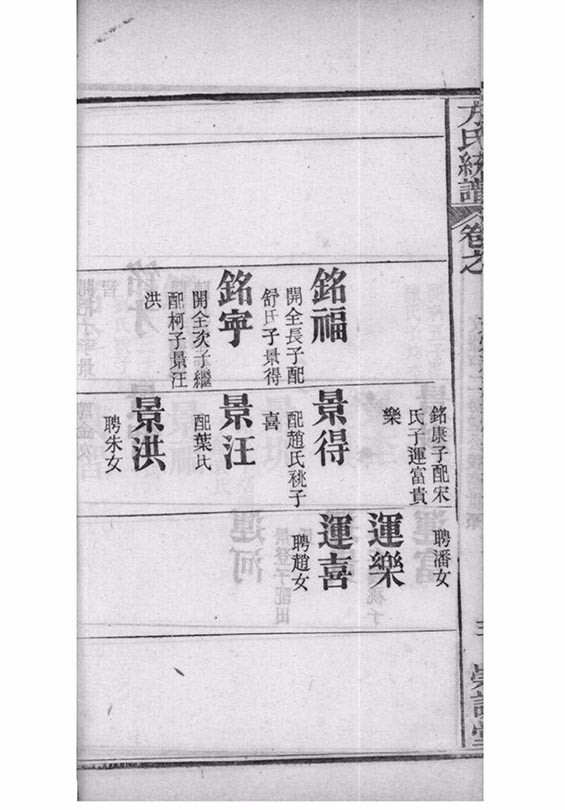 方氏統譜
卷之
銘福
開全長子配
舒氏子景得
銘寧
開全次子繼
配柯子景汪
洪
銘康子配宋
氏子運富貴
樂
景得
配趙氏祧子
喜
景汪
配葉氏
景洪
聘朱女
聘潘女
運樂
運喜
聘趙女